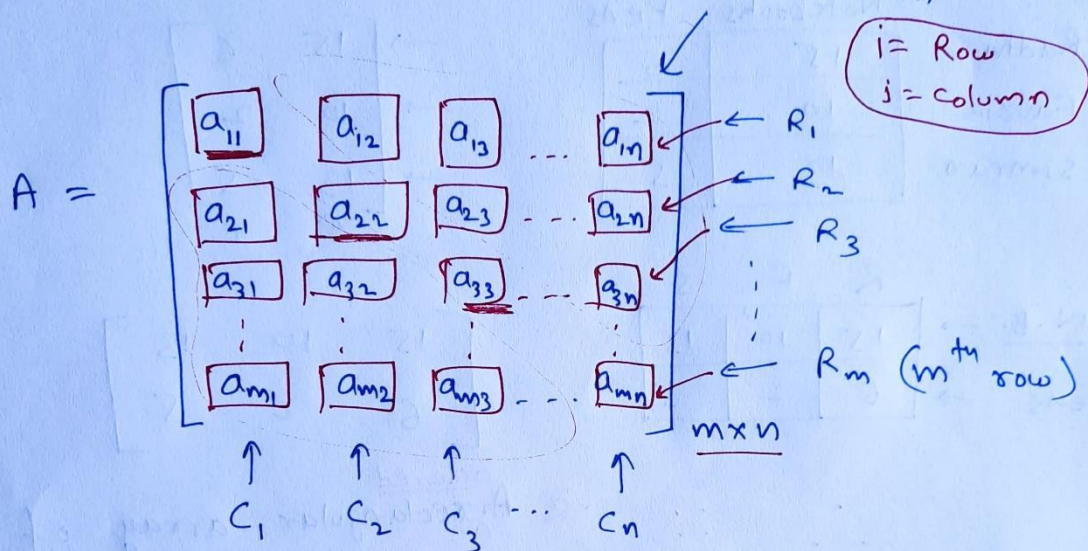 i = Row
j = column
A =
a11 a12 a13 ... a1n ← R1
a21 a22 a23 ... a2n ← R2
a31 a32 a33 ... a3n ← R3
am1 am2 am3 ... amn ← Rm (mth row)
m×n
↑ ↑ ↑ ↑
C1 C2 C3 ... Cn